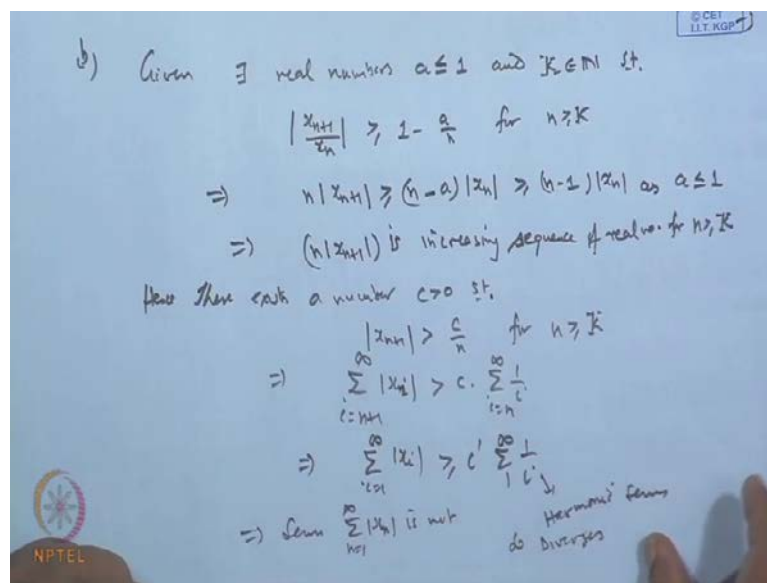 © CET
I.I.T. KGP
b) Given ∃ real numbers a ≤ 1 and K ∈ ℕ s.t.
|x_{n+1}/x_n| ≥ 1 - a/n for n ≥ K
⇒ n|x_{n+1}| ≥ (n-a)|x_n| ≥ (n-1)|x_n| as a ≤ 1
⇒ (n|x_{n+1}|) is increasing sequence of real no. for n ≥ K
Hence There exists a number c>0 s.t.
|x_{n+1}| > c/n for n ≥ K
⇒ ∑_{i=n+1}^{∞} |x_i| > c. ∑_{i=n}^{∞} 1/i
⇒ ∑_{i=1}^{∞} |x_i| ≥ c' ∑_{1}^{∞} 1/i
Harmonic Series
⇒ Series ∑_{n=1}^{∞} |x_n| is not
Diverges
NPTEL